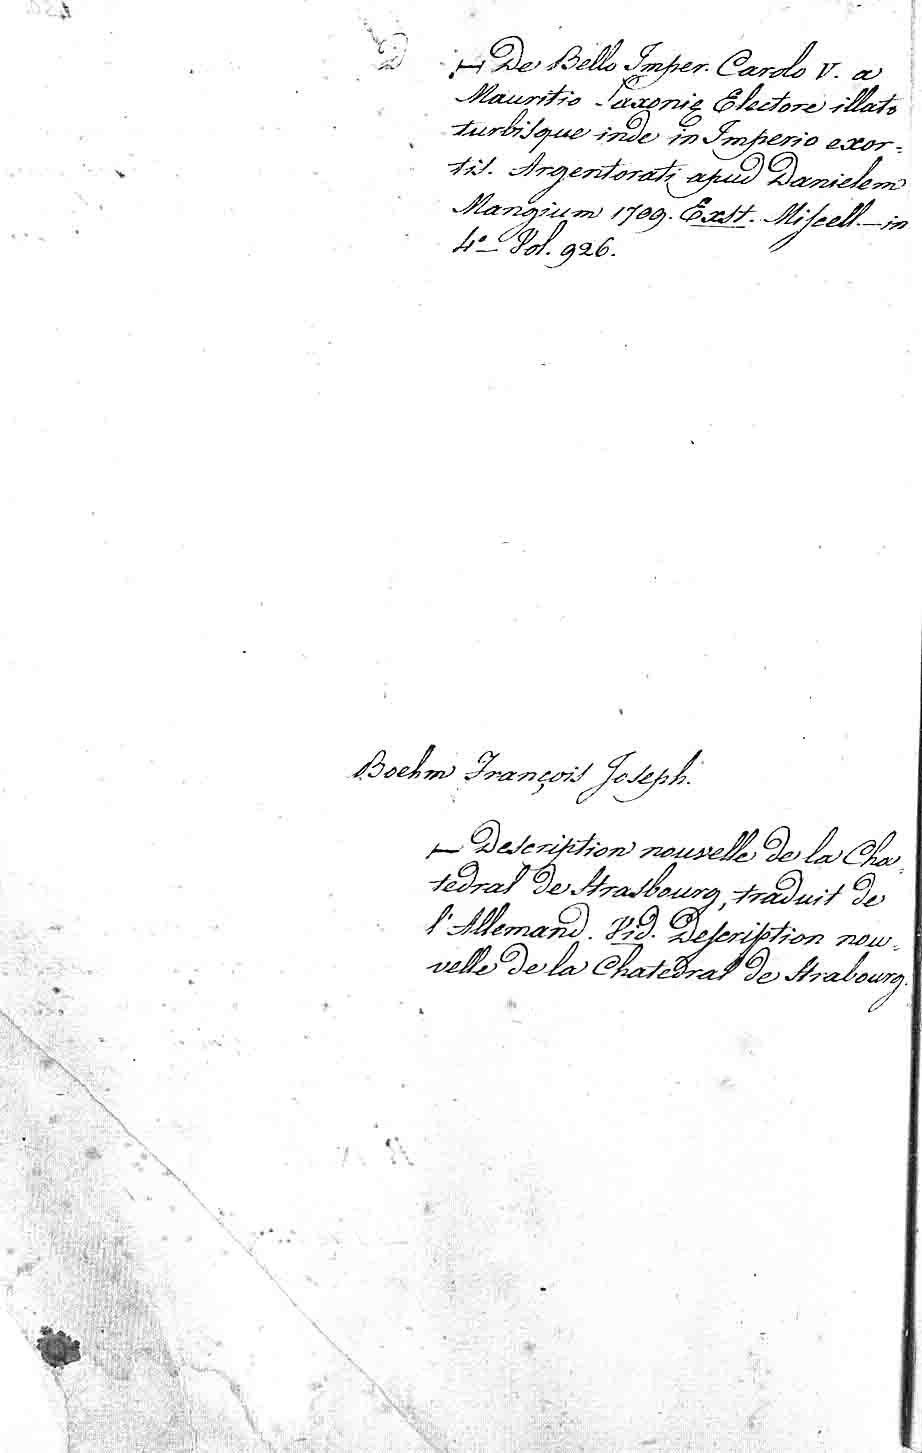 — De Bello Imper. Carolo V. a
Mauritio Saxonię Electore illato
turbisque inde in Imperio exor-
tis. Argentorati apud Danielem
Mangium 1709. Exst. Miscell. — in
4º Vol. 926.
Boehm François Joseph.
— Description nouvelle de la Cha-
tedral de Strasbourg, traduit de
l'Allemand. Vid. Description nou-
velle de la Chatedral de Strabourg.